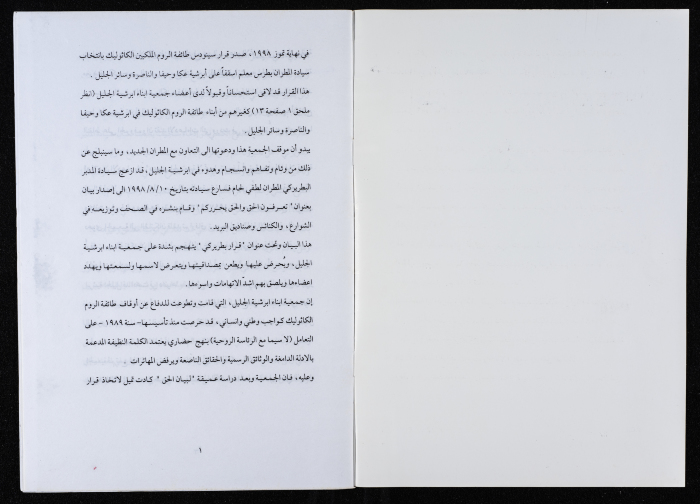 في نهاية تموز ١٩٩٨، صدر قرار سينودس طائفة الروم الملكيين الكاثوليك بانتخاب
سيادة المطران بطرس معلم اسقفاً على أبرشية عكا وحيفا والناصرة وسائر الجليل.
هذا القرار قد لاقى استحساناً وقبولاً لدى أعضاء جمعية ابناء ابرشية الجليل (انظر
ملحق ١ صفحة ١٣) كغيرهم من أبناء طائفة الروم الكاثوليك في ابرشية عكا وحيفا
والناصرة وسائر الجليل.
يبدو أن موقف الجمعية هذا ودعوتها الى التعاون مع المطران الجديد، وما سينبلج عن
ذلك من وئام وتفاهم وانسجام وهدوء في ابرشية الجليل، قد ازعج سيادة المدبر
البطريركي المطران لطفي لحام فسارع سيادته بتاريخ ١٩٩٨/٨/١٠ الى إصدار بيان
بعنوان "تعرفون الحق والحق يحرركم" وقام بنشره في الصحف وتوزيعه في
الشوارع، والكنائس وصناديق البريد.
هذا البيان وتحت عنوان "قرار بطريركي" يتهجم بشدة على جمعية ابناء ابرشية
الجليل، ويُحرض عليها ويطعن بمصداقيتها ويتعرض لاسمها ولسمعتها ويهدد
اعضاءها ويلصق بهم اشدّ الاتهامات واسوءها.
إن جمعية ابناء ابرشية الجليل، التي قامت وتطوعت للدفاع عن أوقاف طائفة الروم
الكاثوليك كواجب وطني وانساني، قد حرصت منذ تأسيسها- سنة ١٩٨٩ - على
التعامل (لا سيما مع الرئاسة الروحية) بنهج حضاري يعتمد الكلمة النظيفة المدعمة
بالادلة الدامغة والوثائق الرسمية والحقائق الناصعة ويرفض المهاترات.
وعليه، فان الجمعية وبعد دراسة عميقة "لبيان الحق" كادت تميل لاتخاذ قرار
١